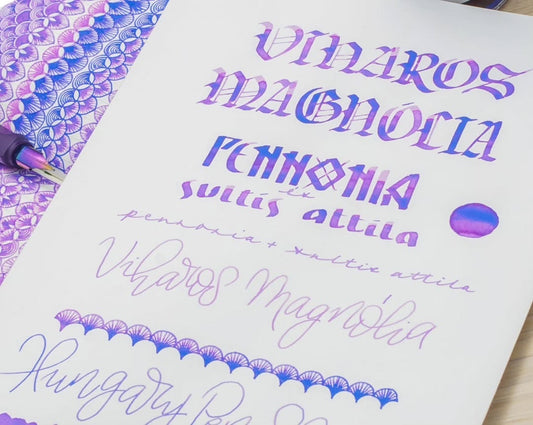 VIHAROS
MAGNÓLIA
PENNONIA
ex
sultis attila
pennonia + sultis attila
Viharos Magnólia
Hungary Pen